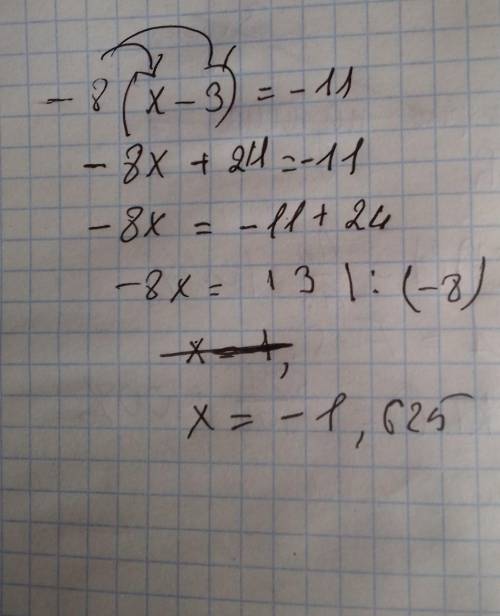 -8(x-3)=-11
-8x+24=-11
-8x=-11+24
-8x=13 |:(-8)
x=-1,625